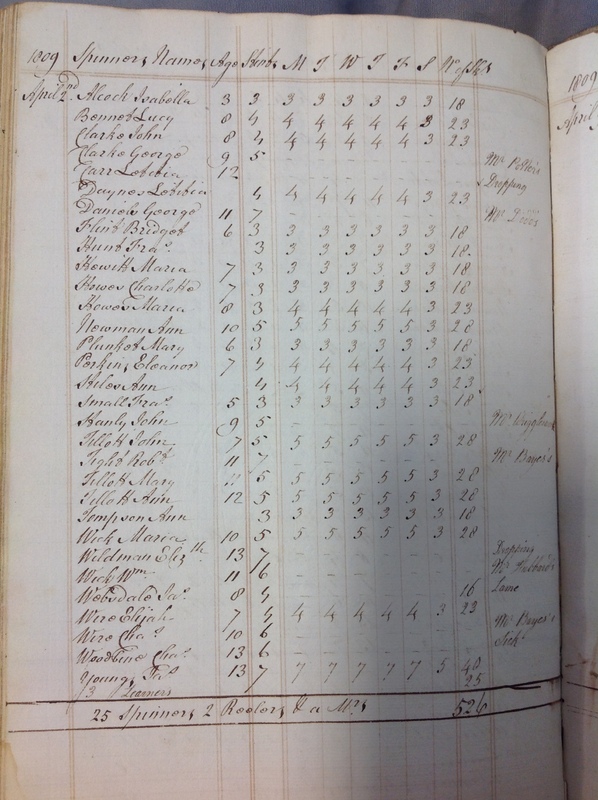 1809 Spinners Names Age Stints M T W T F S No of Sks
April 2nd Alcock Isabella 3 3 3 3 3 3 3 3 18
Bennet Lucy 8 4 4 4 4 4 4 3 23
Clarke John 8 4 4 4 4 4 4 3 23
Clarke George 9 5 - - - - - - Mr
Carr Letitia 12 Dropping
Daynes Letitia 4 4 4 4 4 4 3 23
Daniels George 11 7 - - - - - - Mr
Flint Bridget 6 3 3 3 3 3 3 3 18
Hunt Fras. 3 3 3 3 3 3 3 18
Hewitt Maria 7 3 3 3 3 3 3 3 18
Howes Charlotte 7 3 3 3 3 3 3 3 18
Howes Maria 8 3 4 4 4 4 4 3 23
Newman Ann 10 5 5 5 5 5 5 3 28
Plunket Mary 6 3 3 3 3 3 3 3 18
Perkins Eleanor 7 4 4 4 4 4 4 3 23
Stiles Ann 4 4 4 4 4 4 3 23
Small Fras. 5 3 3 3 3 3 3 3 18
Hanly John 9 5 - - - - - - Mr
Tillott John 7 5 5 5 5 5 5 3 28
Tight Robt. 11 7 - - - - - - Mr Bayes's
Tillott Mary 11 5 5 5 5 5 5 3 28
Tillott Ann 12 5 5 5 5 5 5 3 28
Tompson Ann 3 3 3 3 3 3 3 18
Wick Maria 10 5 5 5 5 5 5 3 28
Wildman Elizth. 13 7 - - - - - - Dropping
Wick Wm. 11 6 - - - - - - Mr Hubbard's
Websdale Jas. 8 4 16 Lame
Wire Elijah 7 4 4 4 4 4 4 3 23
Wire Chas. 10 6 - - - - - - Mr Bayes's
Woodbine Chas. 13 6 - - - - - - Sick
Youngs Jas. 13 7 7 7 7 7 7 5 40
3 Learners 25
25 Spinners 2 Reelers & a Mrs 526
1809
April